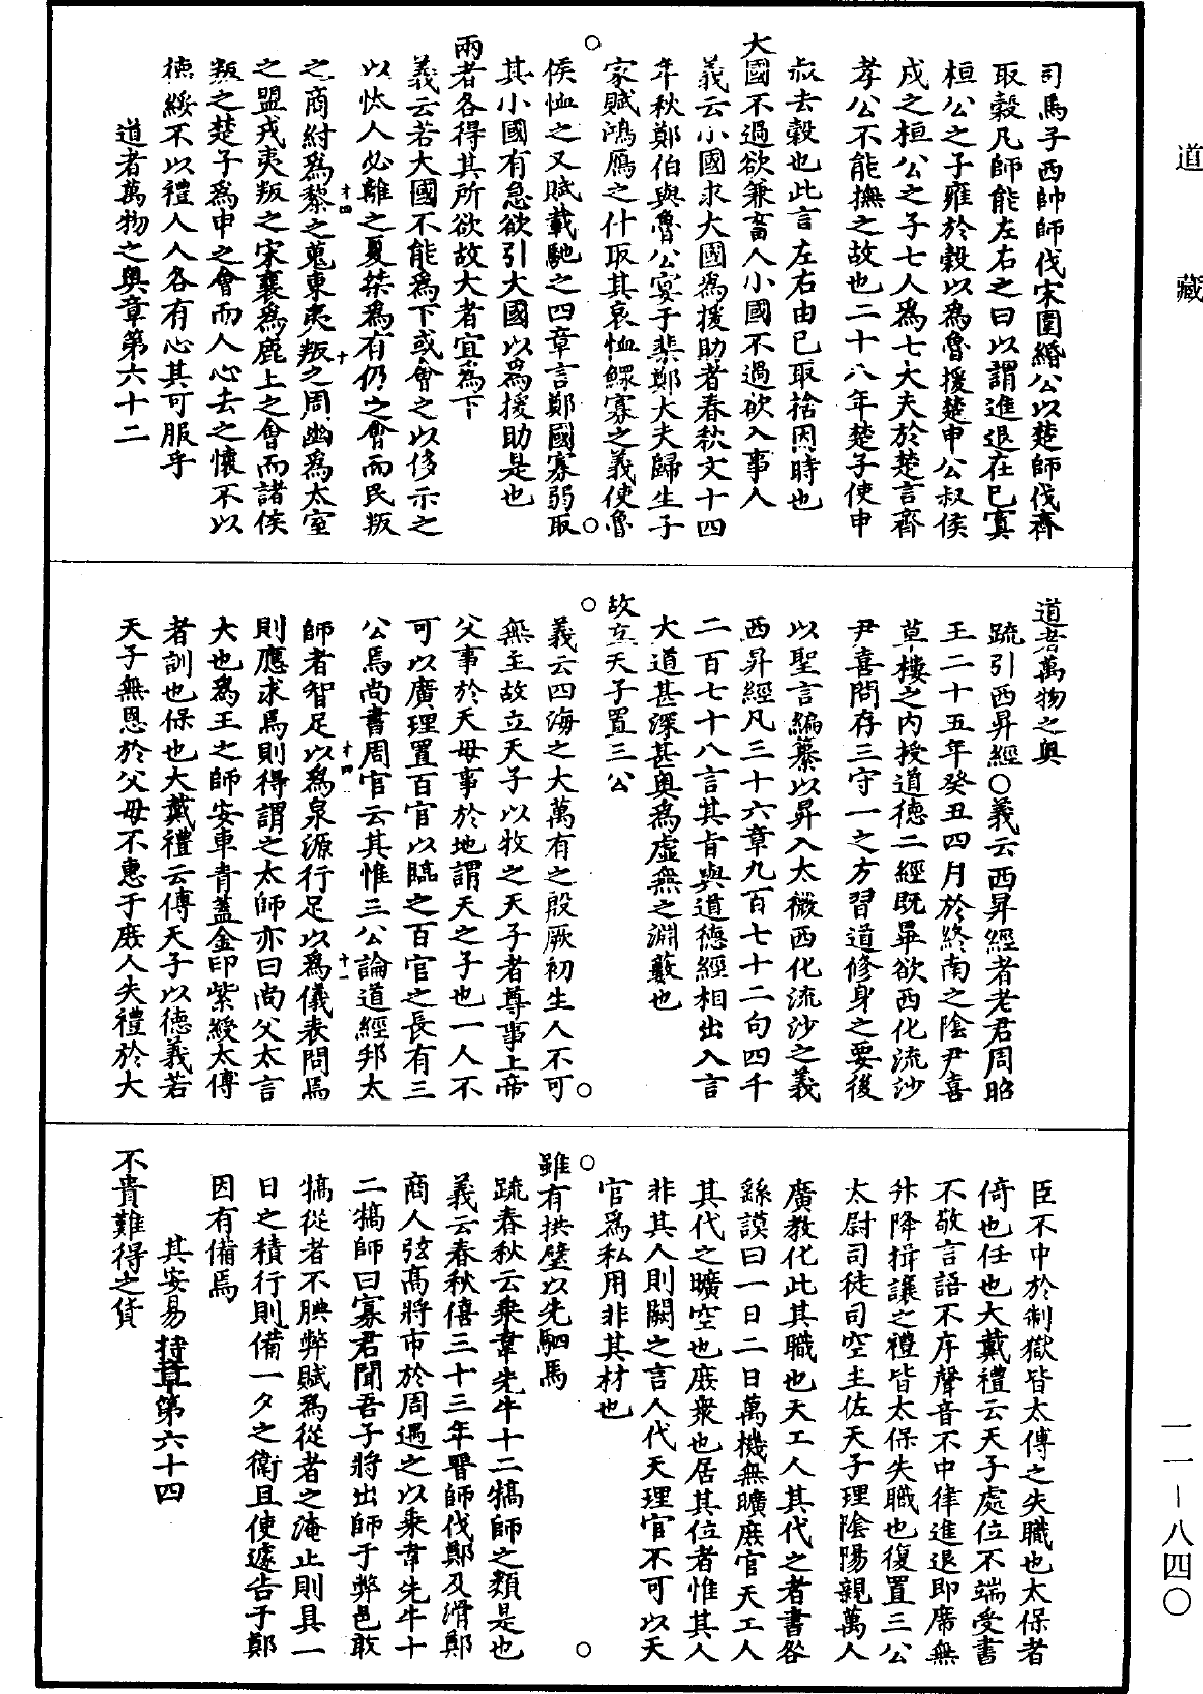 道藏
司馬子西帥師伐宋圍緡公以楚師伐齊
取穀凡師能左右之曰以謂進退在已寘
桓公之子雍於穀以為魯援楚申公叔侯
戍之桓公之子七人為七大夫於楚言齊
孝公不能撫之故也二十八年楚子使申
叔去穀也此言左右由已取捨因時也
大國不過欲兼畜人小國不過欲入事人
義云小國求大國為援助者春秋文十四
年秋鄭伯與魯公宴于棐鄭大夫歸生子
家賦鴻鴈之什取其哀恤鰥寡之義使魯
侯恤之又賦載馳之四章言鄭國寡弱取
其小國有急欲引大國以為援助是也
兩者各得其所欲故大者宜為下
義云若大國不能為下或會之以侈示之
以忲人必離之夏桀為有仍之會而民叛
之商紂為黎之蒐東夷叛之周幽為太室
之盟戎夷叛之宋襄為鹿上之會而諸侯
叛之楚子為申之會而人心去之懷不以
德綏不以禮人人各有心其可服乎
道者萬物之奧章第六十二
道者萬物之奧
疏引西昇經○義云西昇經者老君周昭
王二十五年癸丑四月於終南之陰尹喜
草樓之內授道德二經既畢欲西化流沙
尹喜問存三守一之方習道修身之要後
以聖言編纂以昇入太微西化流沙之義
西昇經凡三十六章九百七十二句四千
二百七十八言其旨與道德經相出入言
大道甚深甚奧為虛無之淵藪也
故立天子置三公
義云四海之大萬有之殷厥初生人不可
無主故立天子以牧之天子者尊事上帝
父事於天母事於地謂天之子也一人不
可以廣理置百官以臨之百官之長有三
公焉尚書周官云其惟三公論道經邦太
師者智足以為泉源行足以為儀表問焉
則應求焉則得謂之太師亦曰尚父太言
大也為王之師安車青蓋金印紫綬太傅
者訓也保也大戴禮云傅天子以德義若
天子無恩於父母不惠于庶人失禮於大
臣不中於制獄皆太傅之失職也太保者
倚也任也大戴禮云天子處位不端受書
不敬言語不序聲音不中律進退即席無
升降揖讓之禮皆太保失職也復置三公
太尉司徒司空主佐天子理陰陽親萬人
廣教化此其職也天工人其代之者書咎
繇謨曰一日二日萬機無曠庶官天工人
其代之曠空也庶衆也居其位者惟其人
非其人則闕之言人代天理官不可以天
官為私用非其材也
雖有拱璧以先駟馬
疏春秋云乘韋先牛十二犒師之類是也
義云春秋僖三十三年晉師伐鄭及滑鄭
商人弦高將市於周遇之以乘韋先牛十
二犒師曰寡君聞吾子將出師于弊邑敢
犒從者不腆弊賦為從者之淹止則具一
日之積行則備一夕之衛且使遽告于鄭
因有備焉
其安易持章第六十四
不貴難得之貨
一一—八四〇